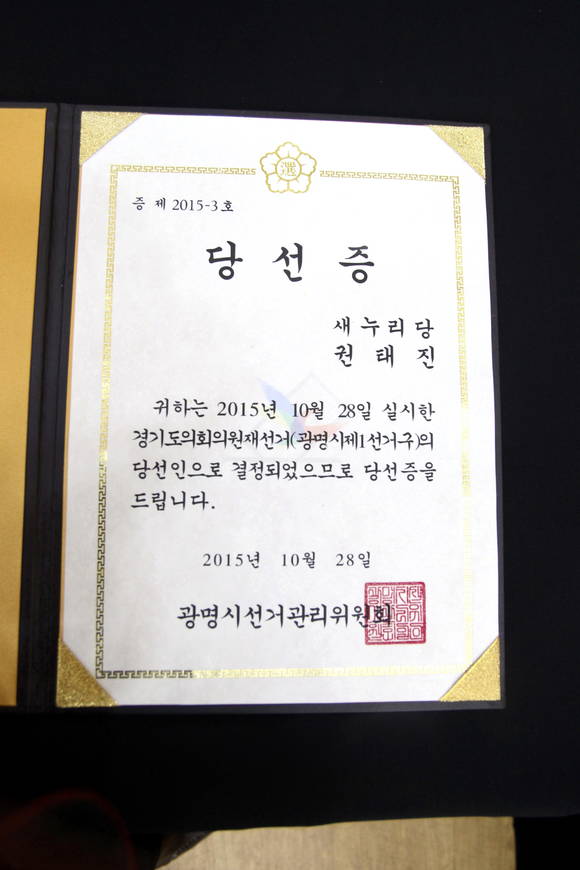 選
증 제 2015-3 호
당 선 증
새누리당
권 태 진
귀하는 2015년 10월 28일 실시한
경기도의회의원재선거(광명시제1선거구)의
당선인으로 결정되었으므로 당선증을
드립니다.
2015년 10월 28일
광명시선거관리위원회